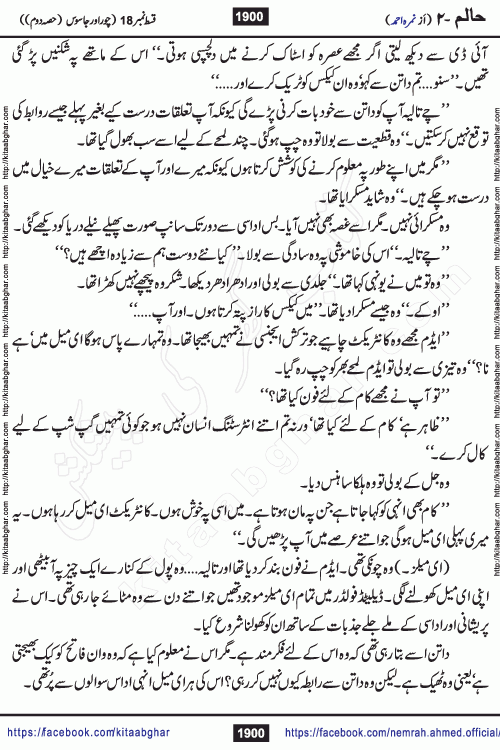 حالم -۲ (از نمرہ احمد) 1900 قسط نمبر 18 (چور اور جاسوس (حصہ دوم))
آئی ڈی سے دیکھ لیتی اگر مجھے عصرہ کو اسٹاک کرنے میں دلچسپی ہوتی۔‘‘ اس کے ماتھے پہ شکنیں پڑ گئی
تھیں۔ ’’سنو....تم داتن سے کہو وہ ان کیکس کو ٹریک کرے اور.....‘‘
’’چے تالیہ آپ کو داتن سے خود بات کرنی پڑے گی کیونکہ آپ تعلقات درست کیے بغیر پہلے جیسے روابط کی
توقع نہیں کر سکتیں۔‘‘ وہ قطعیت سے بولا تو وہ چپ ہو گئی۔ چند لمحے کے لیے اسے سب بھول گیا تھا۔
’’مگر میں اپنے طور پہ معلوم کرنے کی کوشش کرتا ہوں کیونکہ میرے اور آپ کے تعلقات میرے خیال میں
درست ہو چکے ہیں۔‘‘ وہ شاید مسکرایا تھا۔
وہ مسکرائی نہیں۔ مگر اسے غصہ بھی نہیں آیا۔ بس اداسی سے دور تک سانپ صورت پھیلے نیلے دریا کو دیکھے گئی۔
’’چے تالیہ۔‘‘ اس کی خاموشی پہ وہ سادگی سے بولا۔ ’’کیا نئے دوست ہم سے زیادہ اچھے ہیں؟‘‘
’’وہ تو میں نے یونہی کہا تھا۔‘‘ جلدی سے بولی اور ادھر ادھر دیکھا۔ شکر وہ پیچھے نہیں کھڑا تھا۔
’’اوکے۔‘‘ وہ جیسے مسکرا دیا تھا۔ ’’میں کیکس کا راز پتہ کرتا ہوں۔ اور آپ.....‘‘
’’ایڈم مجھے وہ کانٹریکٹ چاہیے جو ترکش ایجنسی نے تمہیں بھیجا تھا۔ وہ تمہارے پاس ہوگا ای میل میں‘ ہے
نا؟‘‘ وہ تیزی سے بولی تو ایڈم لمحے بھر کو چپ رہ گیا۔
’’تو آپ نے مجھے کام کے لئے فون کیا تھا؟‘‘
’’ظاہر ہے‘ کام کے لئے کیا تھا‘ ورنہ تم اتنے انٹرسٹنگ انسان نہیں ہو جو کوئی تمہیں گپ شپ کے لیے
کال کرے۔‘‘
وہ جل کے بولی تو وہ ہلکا سا ہنس دیا۔
’’کام بھی انہی کو کہا جاتا ہے جن پہ مان ہوتا ہے۔ میں اسی پہ خوش ہوں۔ کانٹریکٹ ای میل کر رہا ہوں۔ یہ
میری پہلی ای میل ہوگی جو اتنے عرصے میں آپ پڑھیں گی۔‘‘
(ای میلز۔) وہ چونکی تھی۔ ایڈم نے فون بند کر دیا تھا اور تالیہ....وہ پول کے کنارے ایک چیز پہ آ بیٹھی اور
اپنی ای میل کھولنے لگی۔ ڈیلیٹڈ فولڈر میں تمام ای میلز موجود تھیں جو اتنے دن سے وہ مٹائے جا رہی تھی۔ اس نے
پریشانی اور اداسی کے ملے جلے جذبات کے ساتھ ان کو کھولنا شروع کیا۔
داتن اسے بتا رہی تھی کہ وہ اس کے لئے فکر مند ہے۔ مگر اس نے معلوم کیا ہے کہ وہ وان فاتح کو کیک بھیجتی
ہے یعنی وہ ٹھیک ہے۔ لیکن وہ داتن سے رابطہ کیوں نہیں کر رہی؟ اس کی ہر ای میل انہی اداس سوالوں سے پر تھی۔
https://facebook.com/kitaabghar 1900 https://facebook.com/nemrah.ahmed.official/
http://kitaabghar.com http://kitaabghar.com http://kitaabghar.com http://kitaabghar.com
http://kitaabghar.com http://kitaabghar.com http://kitaabghar.com http://kitaabghar.com